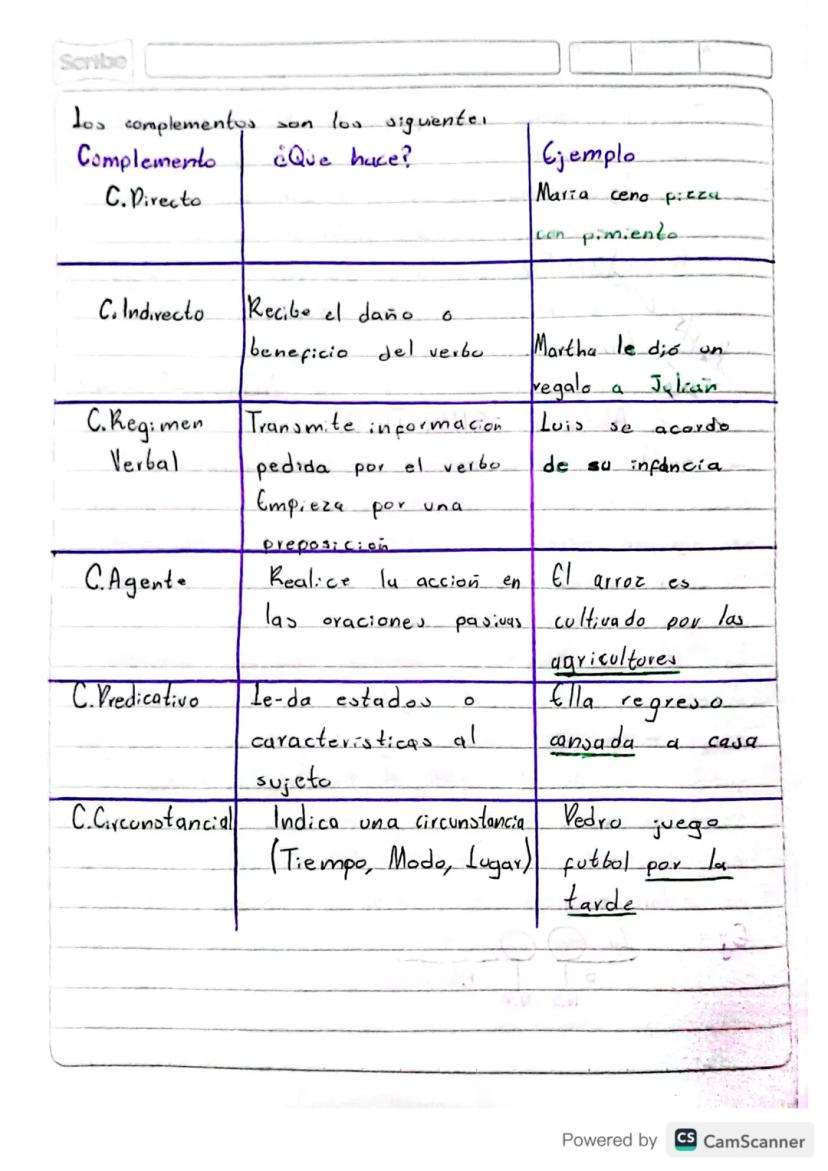 Scribe
Los complementos son los siguientes
Complemento ¿Que hace? Ejemplo
C. Directo Maria ceno pizza
con pimiento
C. Indirecto Recibe el daño o
beneficio del verbo Martha le dió un
regalo a Julian
C. Regimen Transmite informacion Luis se acordo
Verbal pedida por el verbo de su infancia
Empieza por una
preposicion
C. Agente Realice la accion en El arroz es
las oraciones pasivas cultivado por las
agricultores
C. Predicativo Le-da estados o Ella regreso
caracteristicas al cansada a casa
sujeto
C. Circunstancial Indica una circunstancia Pedro juego
(Tiempo, Modo, Lugar) futbol por la
tarde
Powered by CS CamScanner